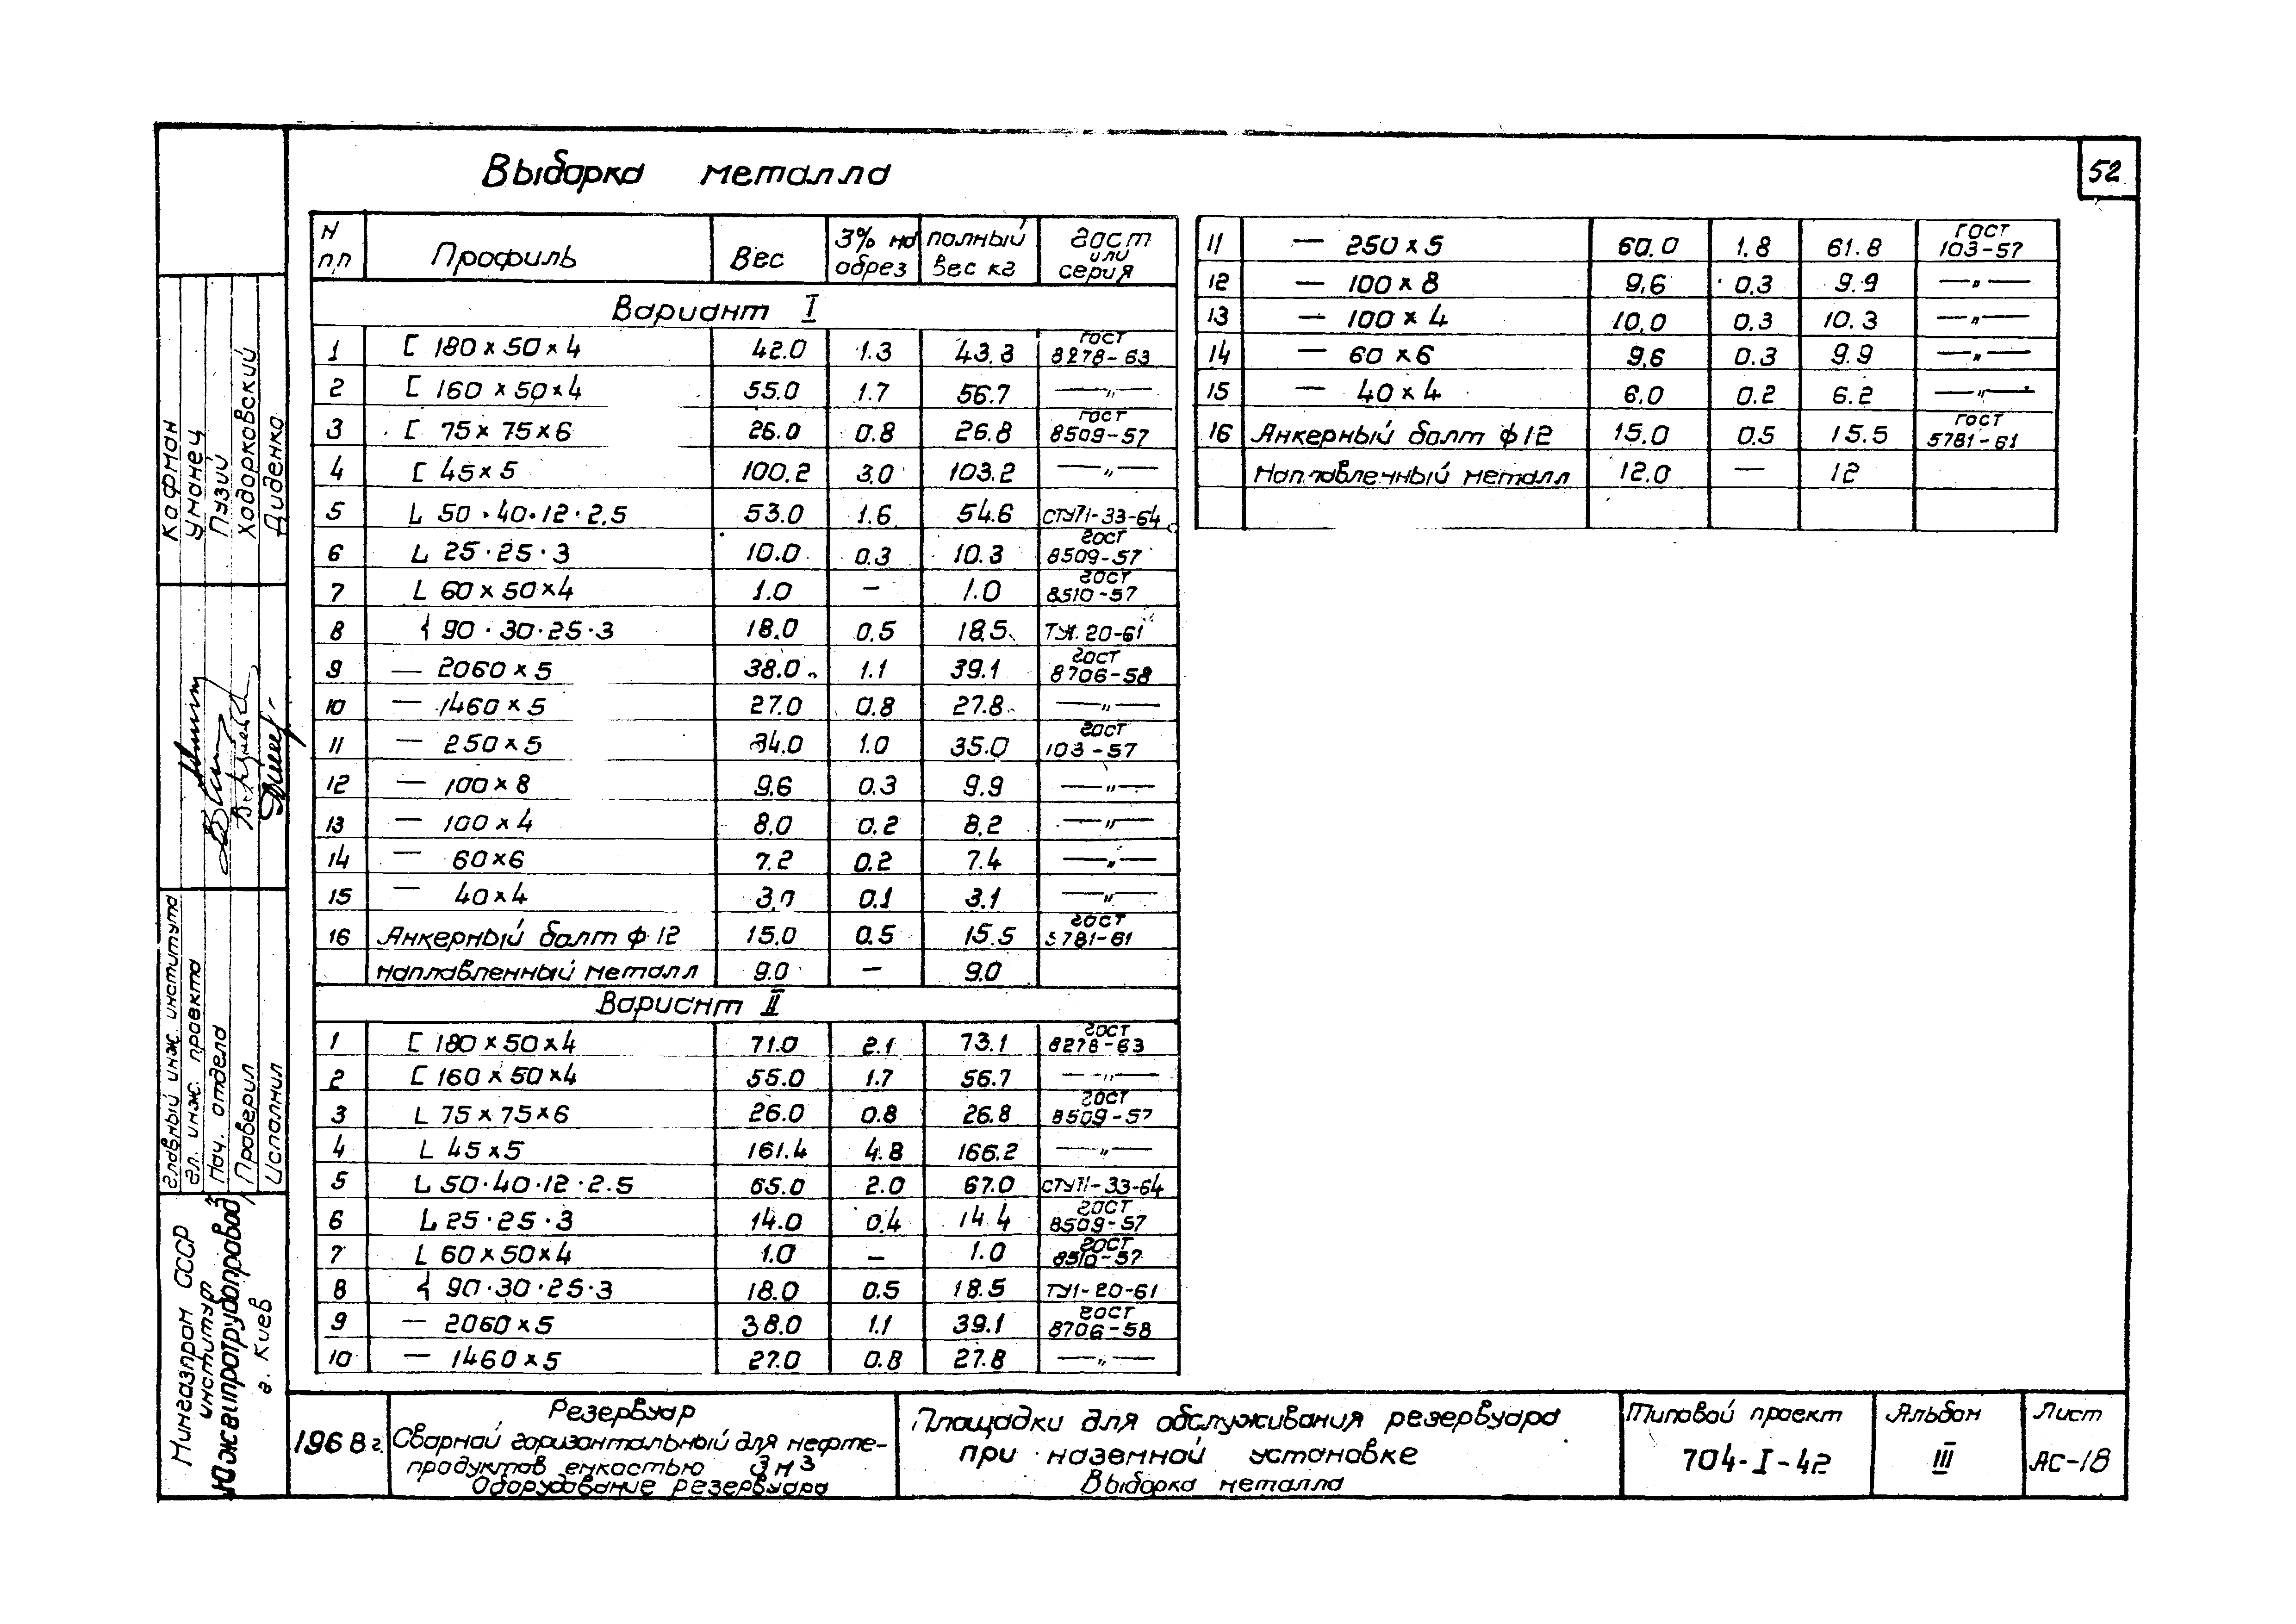 52
Выборка металла
N п,п | Профиль | Вес | 3% на обрез | полный вес кг | гост или серия
Вариант I
1 | [ 180 x 50 x 4 | 42.0 | 1.3 | 43.3 | гост 8278-63
2 | [ 160 x 50 x 4 | 55.0 | 1.7 | 56.7 | —„—
3 | [ 75 x 75 x 6 | 26.0 | 0.8 | 26.8 | гост 8509-57
4 | [ 45 x 5 | 100.2 | 3.0 | 103.2 | —„—
5 | L 50·40·12·2.5 | 53.0 | 1.6 | 54.6 | СТУ71-33-64
6 | L 25·25·3 | 10.0 | 0.3 | 10.3 | гост 8509-57
7 | L 60 x 50 x 4 | 1.0 | — | 1.0 | гост 8510-57
8 | 90·30·25·3 | 18.0 | 0.5 | 18.5 | ТУ1-20-61
9 | — 2060 x 5 | 38.0 | 1.1 | 39.1 | гост 8706-58
10 | — 1460 x 5 | 27.0 | 0.8 | 27.8 | —„—
11 | — 250 x 5 | 34.0 | 1.0 | 35.0 | гост 103-57
12 | — 100 x 8 | 9.6 | 0.3 | 9.9 | —„—
13 | — 100 x 4 | 8.0 | 0.2 | 8.2 | —„—
14 | — 60 x 6 | 7.2 | 0.2 | 7.4 | —„—
15 | — 40 x 4 | 3.0 | 0.1 | 3.1 | —„—
16 | Анкерный болт ф 12 | 15.0 | 0.5 | 15.5 | гост 5781-61
наплавленный металл | 9.0 | — | 9.0
Вариант II
1 | [ 180 x 50 x 4 | 71.0 | 2.1 | 73.1 | гост 8278-63
2 | [ 160 x 50 x 4 | 55.0 | 1.7 | 56.7 | —„—
3 | L 75 x 75 x 6 | 26.0 | 0.8 | 26.8 | гост 8509-57
4 | L 45 x 5 | 161.4 | 4.8 | 166.2 | —„—
5 | L 50·40·12·2.5 | 65.0 | 2.0 | 67.0 | СТУ71-33-64
6 | L 25·25·3 | 14.0 | 0.4 | 14.4 | гост 8509-57
7 | L 60 x 50 x 4 | 1.0 | — | 1.0 | гост 8510-57
8 | 90·30·25·3 | 18.0 | 0.5 | 18.5 | ТУ1-20-61
9 | — 2060 x 5 | 38.0 | 1.1 | 39.1 | гост 8706-58
10 | — 1460 x 5 | 27.0 | 0.8 | 27.8 | —„—
11 | — 250 x 5 | 60.0 | 1.8 | 61.8 | гост 103-57
12 | — 100 x 8 | 9.6 | 0.3 | 9.9 | —„—
13 | — 100 x 4 | 10.0 | 0.3 | 10.3 | —„—
14 | — 60 x 6 | 9.6 | 0.3 | 9.9 | —„—
15 | — 40 x 4 | 6.0 | 0.2 | 6.2 | —„—
16 | Анкерный болт ф 12 | 15.0 | 0.5 | 15.5 | гост 5781-61
Наплавленный металл | 12.0 | — | 12
Кофман
Уманец
Пузий
Ходорковский
Диденко
главный инж. института
гл. инж. проекта
Нач. отдела
Проверил
Исполнил
Мингазпром СССР
институт
Южгипротрубопровод
г. Киев
1968 г.
Резервуар
Сварной горизонтальный для нефте-
продуктов емкостью 3 м3
Оборудование резервуара
Площадки для обслуживания резервуара
при наземной установке
Выборка металла
Типовой проект
704-I-42
Альбом
III
Лист
АС-18